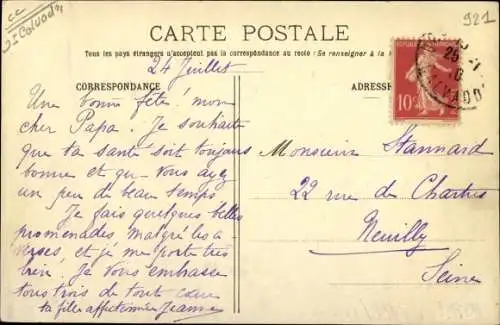 cc
Calvados
921
CARTE POSTALE
Tous les pays étrangers n'acceptent pas la correspondance au recto (Se renseigner à la
CORRESPONDANCE
ADRESSE
REPUBLIQUE FRANCAISE
10c
24 Juillet
Une bonne fête! mon
cher Papa. Je souhaite
que ta santé soit toujours
bonne et que vous ayez
un peu de beau temps.
Je fais quelques belles
promenades malgré les a
verses, et je me porte très
bien. Je vous embrasse
tous trois de tout cœur
ta fille affectionnée Jeanne
Monsieur Stannard
22 rue de Chartres
Neuilly
Seine